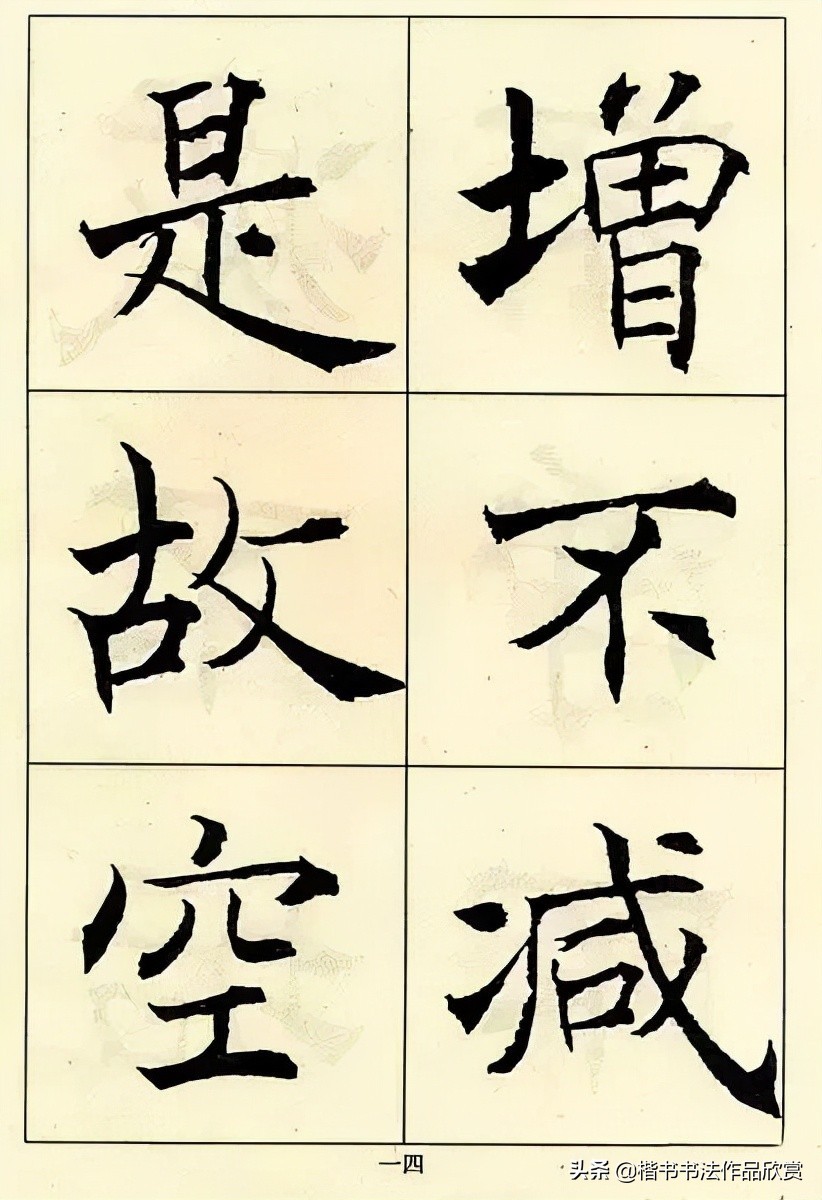 增不减
是故空
一四
头条 @楷书书法作品欣赏